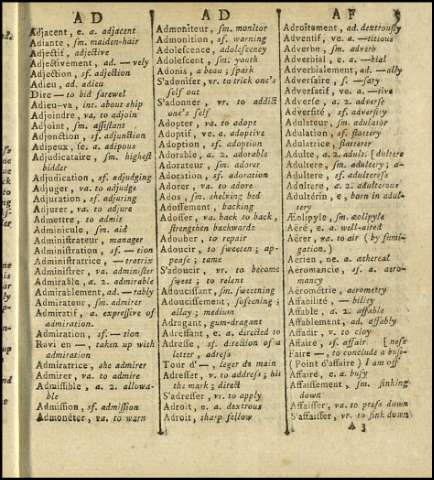 A D
Adjacent, e. a. adjacent
Adiante, sm. maiden-hair
Adjectif, adjective
Adjectivement, ad. — vely
Adjection, sf. adjection
Adieu, ad. adieu
Dire — to bid farewel
Adieu-va, int. about ship
Adjoindre, va. to adjoin
Adjoint, sm. assistant
Adjonction, sf. adjunction
Adipeux, se. a. adipous
Adjudicataire, sm. highest
bidder
Adjudication, sf. adjudging
Adjuger, va. to adjudge
Adjuration, sf. adjuring
Adjurer, va. to adjure
Admettre, va. to admit
Adminicule, sm. aid
Administrateur, manager
Administration, sf. — tion
Administratrice, — tratrix
Administrer, va. administer
Admirable, a. 2. admirable
Admirablement, ad. — rably
Admirateur, sm. admirer
Admiratif, a. expressive of
admiration
Admiration, sf. — tion
Ravi en —, taken up with
admiration
Admiratrice, she admirer
Admirer, va. to admire
Admissible, a. 2. allowa-
ble
Admission, sf. admission
Admonéter, va. to warn
A D
Admoniteur, sm. monitor
Admonition, sf. warning
Adolescence, adolescency
Adolescent, sm. youth
Adonis, a beau; spark
S'adoniser, vr. to trick one's
self out
S'adonner, vr. to addict
one's self
Adopter, va. to adopt
Adoptif, ve. a. adoptive
Adoption, sf. adoption
Adorable, a. 2. adorable
Adorateur, sm. adorer
Adoration, sf. adoration
Adorer, va. to adore
Ados, sm. shelving bed
Adossement, backing
Adosser, va. back to back,
strengthen backwards
Adouber, to repair
Adoucir, to sweeten; ap-
pease; tame
S'adoucir, vr. to become
sweet; to relent
Adoucissant, sm. sweetning
Adoucissement, softening;
allay; medium
Adragant, gum-dragant
Adressant, e. a. directed to
Adresse, sf. direction of a
letter, adress
Tour d'—, leger de main
Adresser, va. to address; hit
the mark; direct
S'adresser, vr. to apply
Adroit, e. a. dextrous
Adroit, sharp fellow
A F
Adroitement, ad. dextrously
Adventif, ve. a. —titious
Adverbe, sm. adverb
Adverbial, e. a. —bial
Adverbialement, ad. —ally
Adversaire, s. —sary
Adversatif, ve. a. —tive
Adverse, a. 2. adverse
Adversité, sf. adversity
Adulateur, sm. adulator
Adulation, sf. flattery
Adulatrice, flatterer
Adulte, a. 2. adult [dultere
Adultere, sm. adultery; a-
Adultere, sf. adulteress
Adultere, a. 2. adulterous
Adultérin, e, born in adul-
tery
Æolipyle, sm. æolipyle
Aéré, e. a. well-aired
Aérer, va. to air (by fumi-
gation.)
Aerien, ne. a. æthereal
Aeromancie, sf. a. aero-
mancy
Aérométrie, aerometry
Affabilité, — bility
Affable, a. 2. affable
Affablement, ad. affably
Affadir, v. to cloy
Affaire, sf. affair [ness
Faire —, to conclude a busi-
(Point d'affaire) I am off
Affairé, e. a. busy
Affaissement, sm. sinking
down
Affaisser, va. to press down
S'affaisser, vr. to sink down
A 3